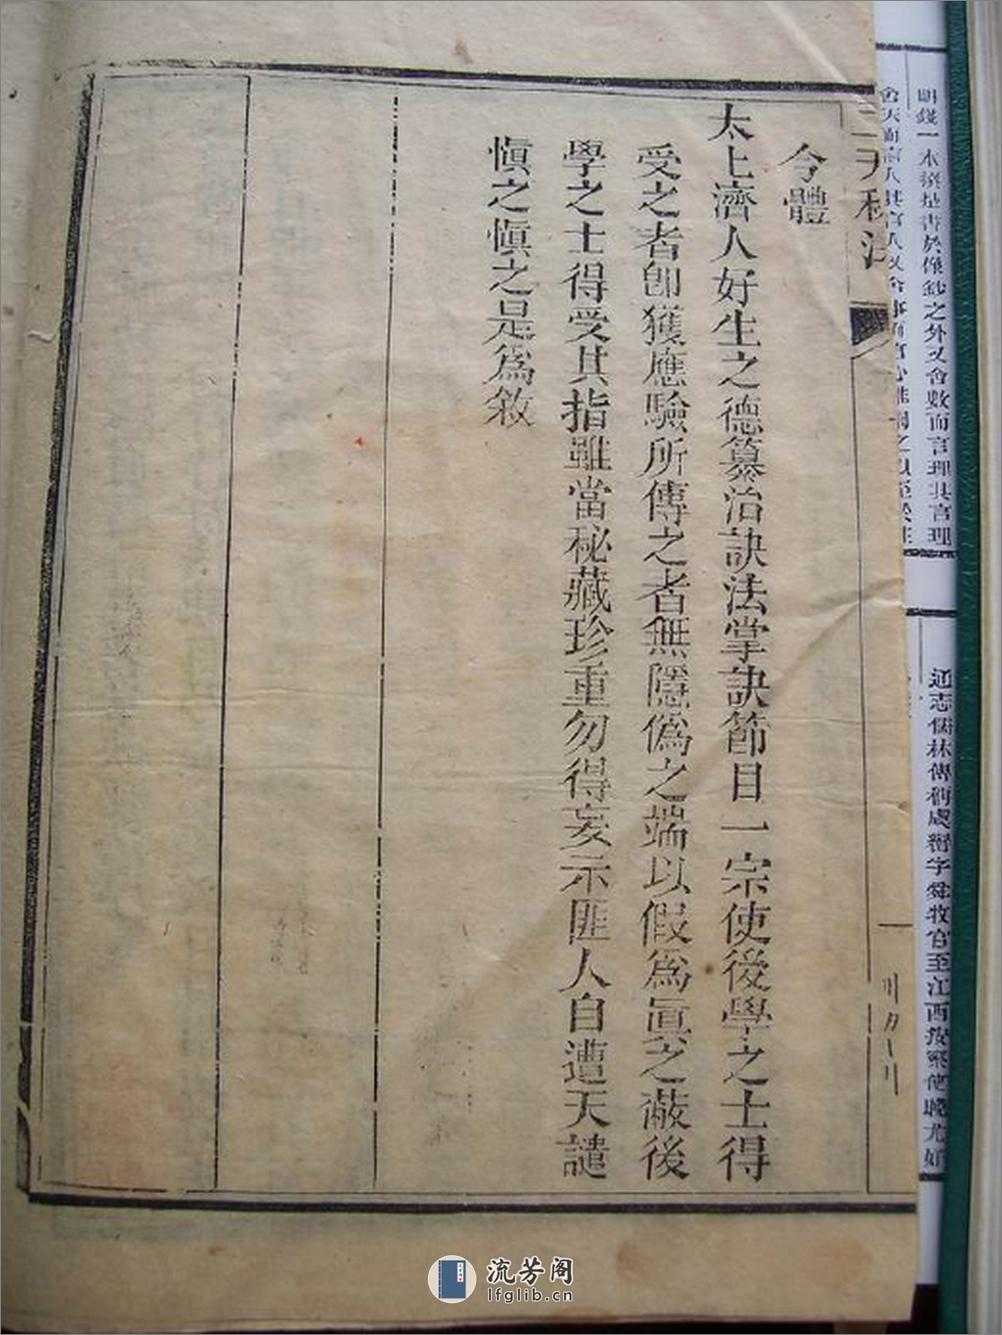 今體
太上濟人好生之德纂治訣法掌訣節目一宗使後學之士得
受之者卽獲應驗所傳之者無隱僞之端以假爲眞之蔽後
學之士得受其指雖當秘藏珍重勿得妄示匪人自遭天譴
愼之愼之是爲敘
之外又會數而言理其言理
通志儒林傳
字舜牧官至江西按察使晚尤好
流芳阁
lfglib.cn